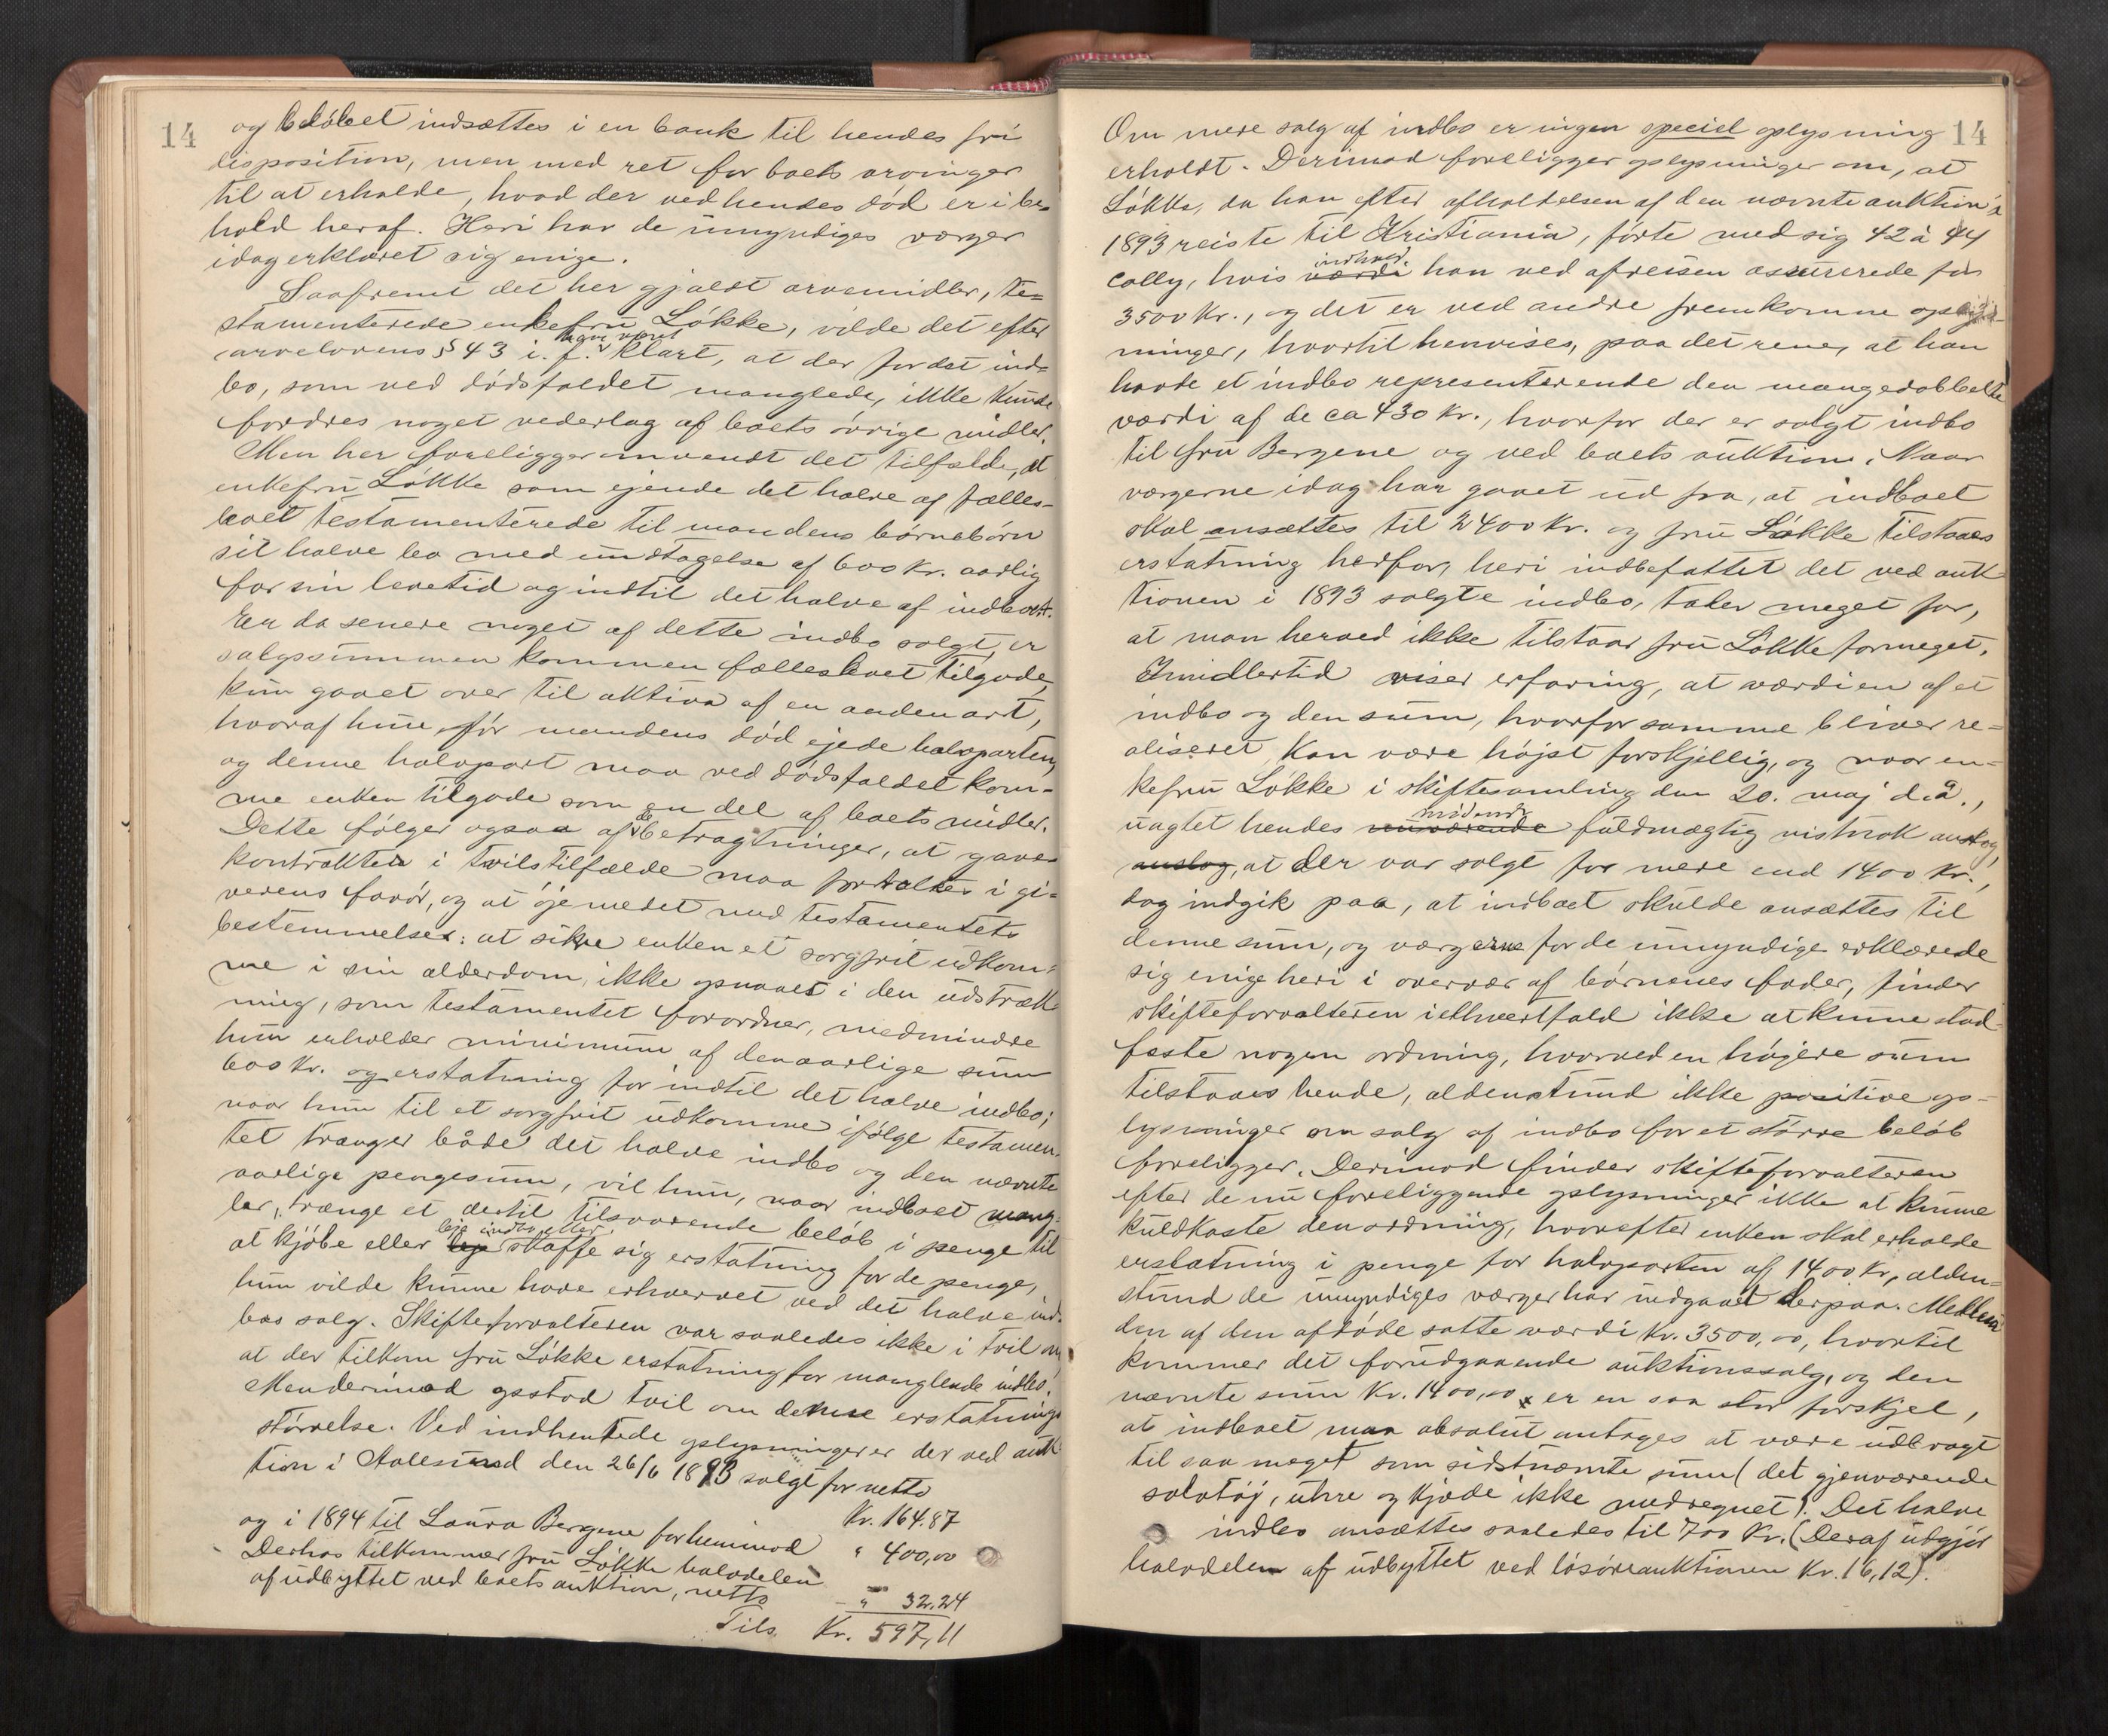 14
og beløbet indsættes i en bank til hendes fri
disposition, men med ret for boets arvinger
til at erholde, hvad der ved hendes død er i be=
hold heraf. Heri har de umyndiges værger
idag erklæret sig enige.
Saafremt det her gjaldt arvemidler, te=
stamenterede enkefru Løkke, vilde det efter
arvelovens § 43 i. f. have været klart, at der for det ind=
bo, som ved dødsfaldet manglede, ikke kunde
fordres noget vederlag af boets øvrige midler.
Men her foreligger omvendt det tilfælde, at
enkefru Løkke som ejende det halve af fælles-
boet testamenterede til mandens børnebørn
sit halve bo med undtagelse af 600 kr. aarlig
for sin levetid og indtil det halve af indboet.
Er da senere noget af dette indbo solgt, er
salgssummen kommen fællesboet tilgode,
kun gaaet over til aktiva af en anden art,
hvoraf hun før mandens død ejede halvparten,
og denne halvpart maa ved dødsfaldet kom=
me enken tilgode som en del af boets midler.
Dette følger ogsaa af de betragtninger, at gave
kontrakter i tvilstilfælde maa fortolkes i gi=
verens favør, og at øjemedet med testamentets
bestemmelser: at sikre enken et sorgfrit udkom=
me i sin alderdom, ikke opnaaes i den udstræk
ning, som testamentet forordner, medmindre
hun erholder minimum af den aarlige sum
600 kr. og erstatning for indtil det halve indbo;
naar hun til et sorgfrit udkomme ifølge testamen
tet trænger både det halve indbo og den nævnte
aarlige pengesum, vil hun, naar indboet mang=
ler, trænge et dertil tilsvarende beløb i penge til
at kjøbe eller leje indbo eller skaffe sig erstatning for de penge,
hun vilde kunne have erhvervet ved det halve ind=
bos salg. Skifteforvalteren var saaledes ikke i tvil om
at der tilkom fru Løkke erstatning for manglende indbo.
Men derimod opstod tvil om denne erstatnings
størrelse. Ved indhentede oplysninger er der ved auk
tion i Aalesund den 26/6 1893 solgt for netto
Kr. 164.87
og i 1894 til Laura Bergene for henimod " 400,00
Derhos tilkommer fru Løkke halvdelen
af udbyttet ved boets auktion, netto - " 32.24
Tils. Kr. 597,11
14
Om mere salg af indbo er ingen speciel oplysning
erholdt. Derimod foreligger oplysninger om, at
Løkke, da han efter afholdelsen af den nævnte auktion i
1893 reiste til Kristiania, førte med sig 42 à 44
colly, hvis værdi indhold han ved afreisen assurerede for
3500 kr., og det er ved andre fremkomne oplys-
ninger, hvortil henvises, paa det rene, at han
havde et indbo representerende den mangedobbelte
værdi af de ca 430 kr., hvorfor der er solgt indbo
til fru Bergene og ved boets auktion. Naar
værgerne idag har gaaet ud fra, at indboet
skal ansættes til 2400 kr. og fru Løkke tilstaaes
erstatning herfor, heri indbefattet det ved auk
tionen i 1893 solgte indbo, taler meget for,
at man herved ikke tilstaar fru Løkke formeget.
Imidlertid viser erfaring, at værdien af et
indbo og den sum, hvorfor samme bliver re=
aliseret, kan være højst forskjellig, og naar en=
kefru Løkke i skiftesamling den 20. maj d.å.,
uagtet hendes nuværende mødende fuldmægtig vistnok antog,
antog, at der var solgt for mere end 1400 kr.,
dog indgik paa, at indboet skulde ansættes til
denne sum, og værgerne for de umyndige erklærede
sig enige heri i overvær af børnenes fader, finder
skifteforvalteren iethvertfald ikke at kunne stad-
fæste nogen ordning, hvorved en højere sum
tilstaaes hende, aldenstund ikke positive op-
lysninger om salg af indbo for et større beløb
foreligger. Derimod finder skifteforvalteren
efter de nu foreliggende oplysninger ikke at kunne
kuldkaste den ordning, hvorefter enken skal erholde
erstatning i penge for halvparten af 1400 kr, alden=
stund de umyndiges værger har indgaaet derpaa. Mellem
den af den afdøde satte værdi kr. 3500,00, hvortil
kommer det forudgaaende auktionssalg, og den
nævnte sum kr. 1400,00 er en saa stor forskjel,
at indboet maa absolut antages at være udbragt
til saa meget som sidstnævnte sum (det gjenværende
sølvtøj, uhre og kjæde ikke medregnet). Det halve
indbo ansættes saaledes til 700 kr. (Deraf udgjør
halvdelen af udbyttet ved løsøreauktionen kr. 16,12).